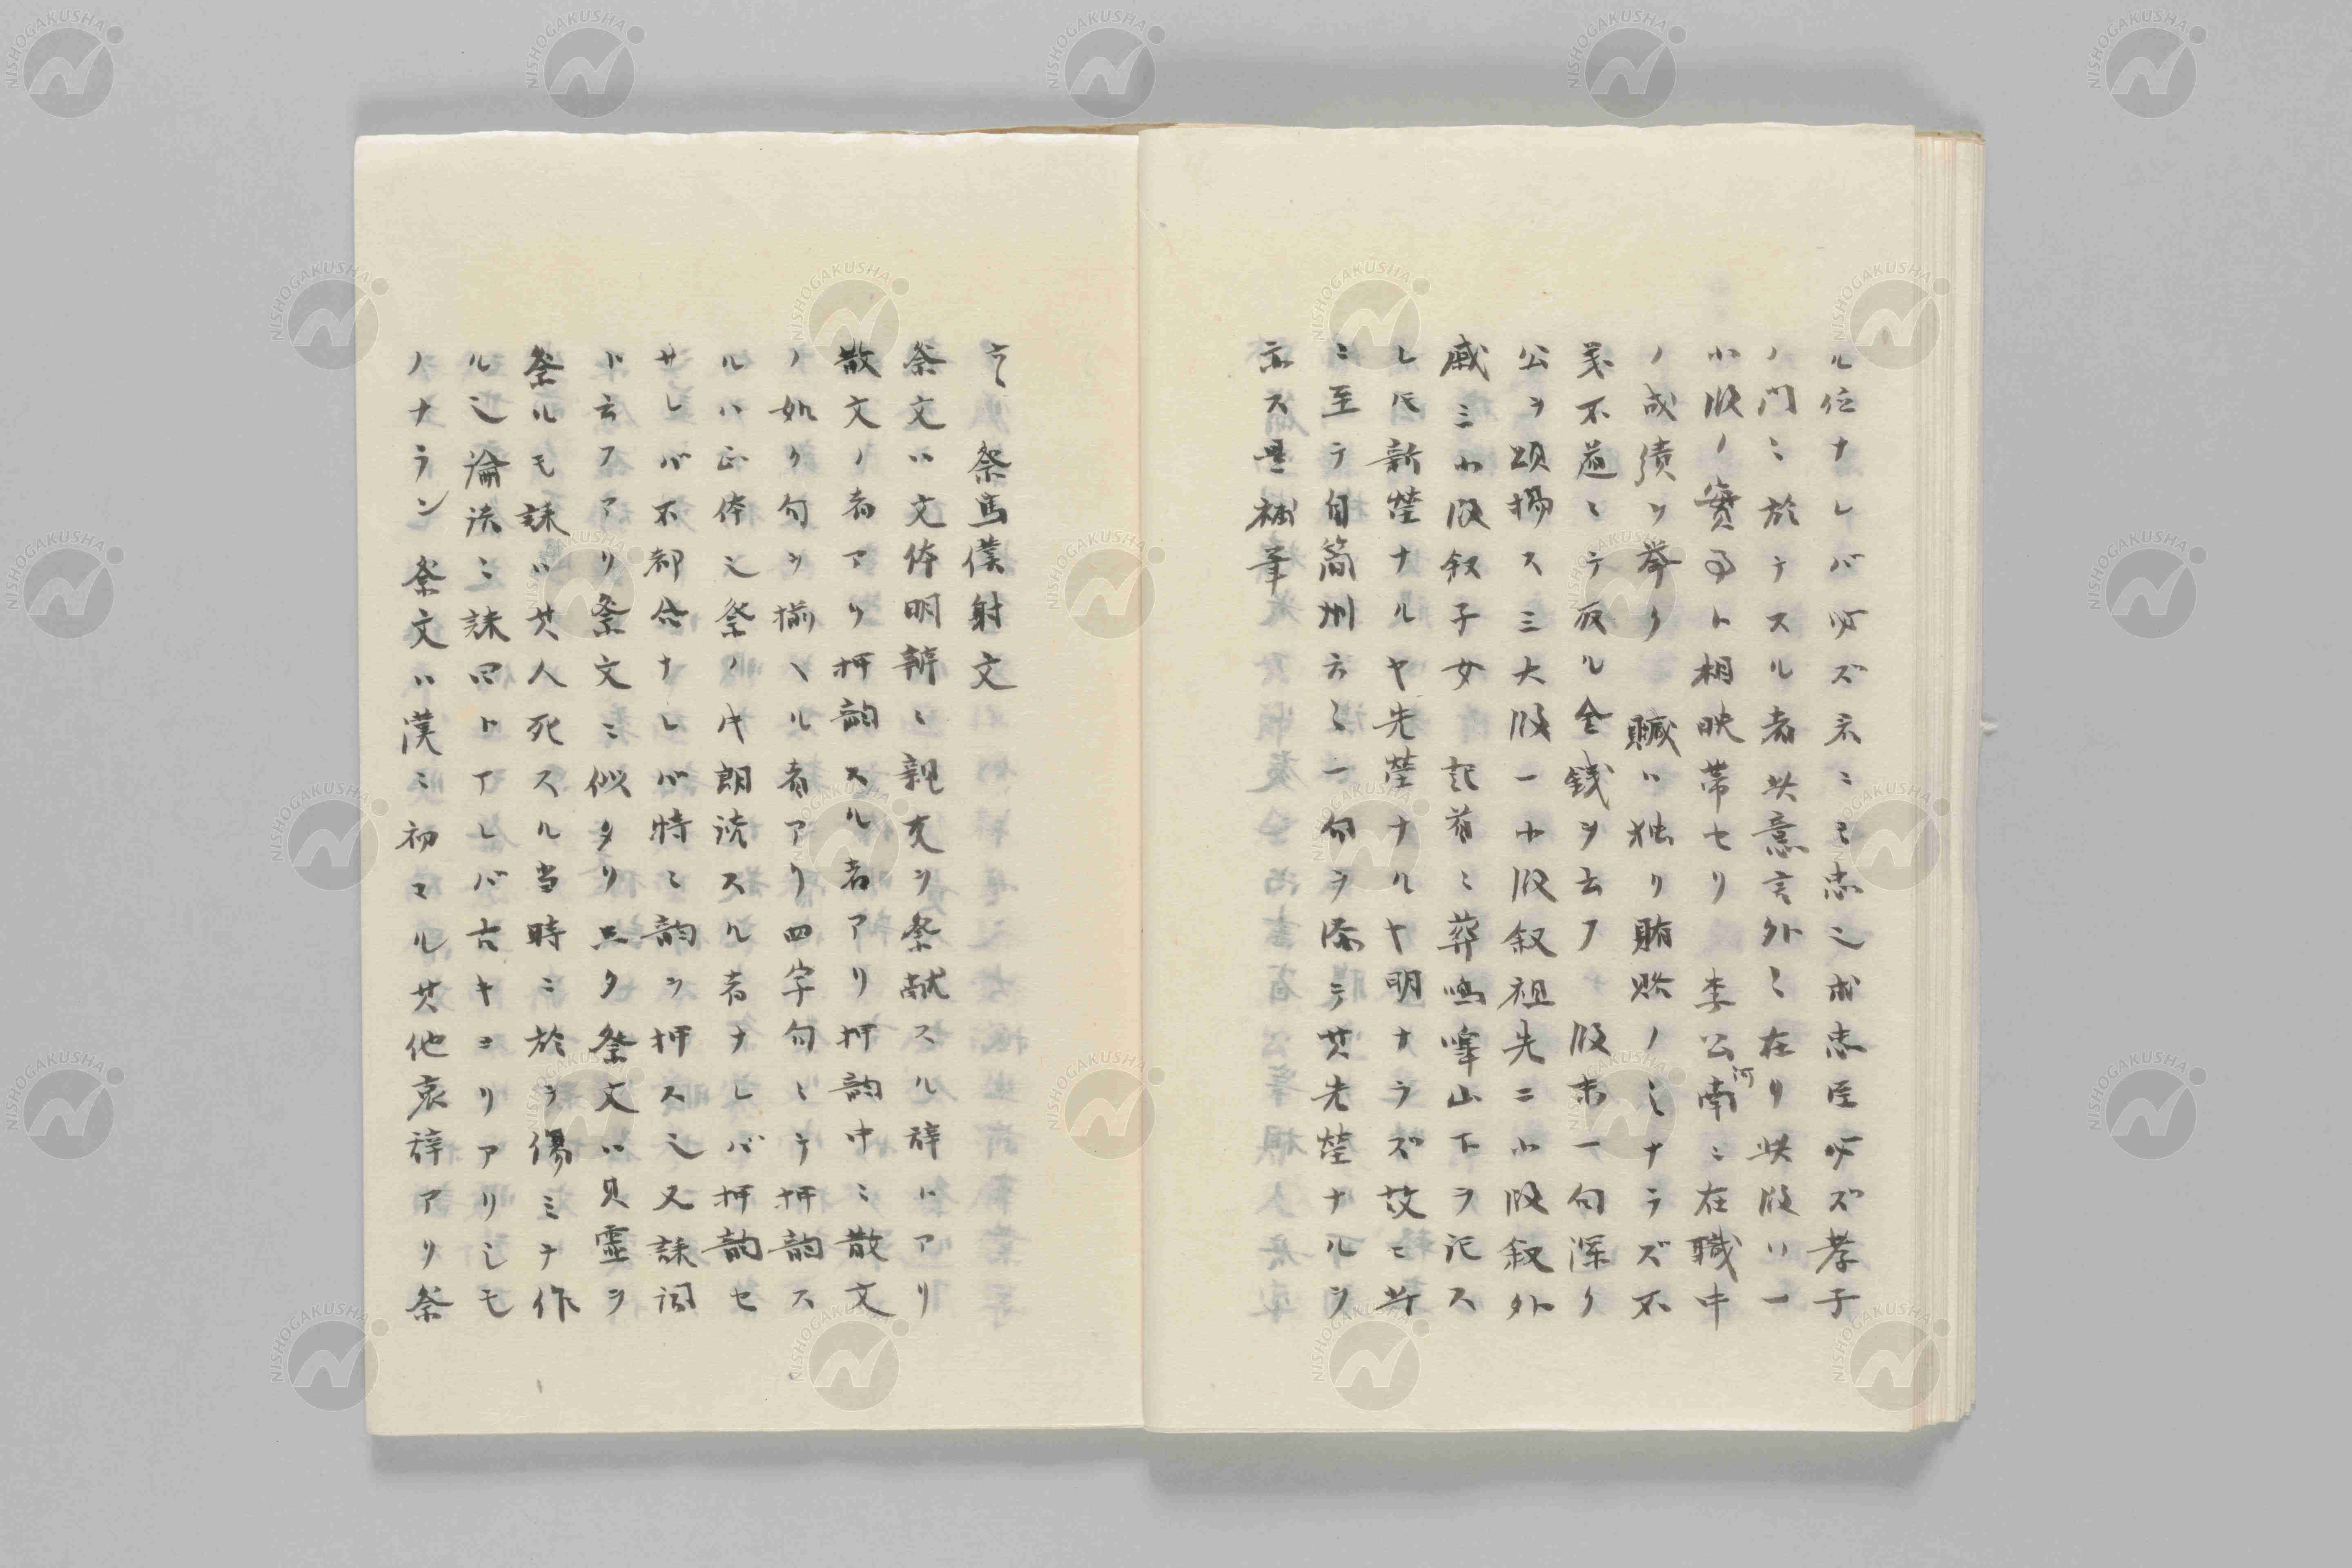 ル位ナレバ必ズ君ニヽ忠之求志臣必ズ孝子
ノ門ニ於テスル者此意言外ニ在リ此段ハ一
小段ノ實事ト相映帯セリ 李公河南ニ在職中
ノ成績ヲ挙ク 贓ハ独リ賄賂ノミナラズ不
義不道ニテ取ル金銭ヲ云フ 段末一句深ク
公ヲ頌揚ス三大段一小段叙祖先二小段叙外
戚三小段叙子女 記首ニ葬鳴皐山下ヲ記ス
レ𪜈新塋ナルヤ先塋ナルヤ明ナラズ故ニ此
ニ至テ自簡州云々一句ヲ添テ其先塋ナルヲ
示ス是補筆
云々
祭馬僕射文
祭文ハ文体明辨ニ親友ヲ祭献スル辞ハアリ
散文ノ者アリ押韵スル者アリ押韵中ニ散文
ノ如ク句ヲ揃ヘル者アリ四字句ニテ押韵ス
ルハ正体之祭ノ時朗読スル者ナレバ押韵セ
サレバ不都合ナレバ特ニ韵ヲ押ス之又誄詞
ト云フアリ祭文ニ似タリ只タ祭文ハ其霊ヲ
祭ルモ誄ハ其人死スル当時ニ於テ傷ミテ作
ル之論語ニ誄曰トアレバ古キヨリアリしモ
ノナラン 祭文ハ漢ニ初マル其他哀辞アリ祭
NISHOGAKUSHA